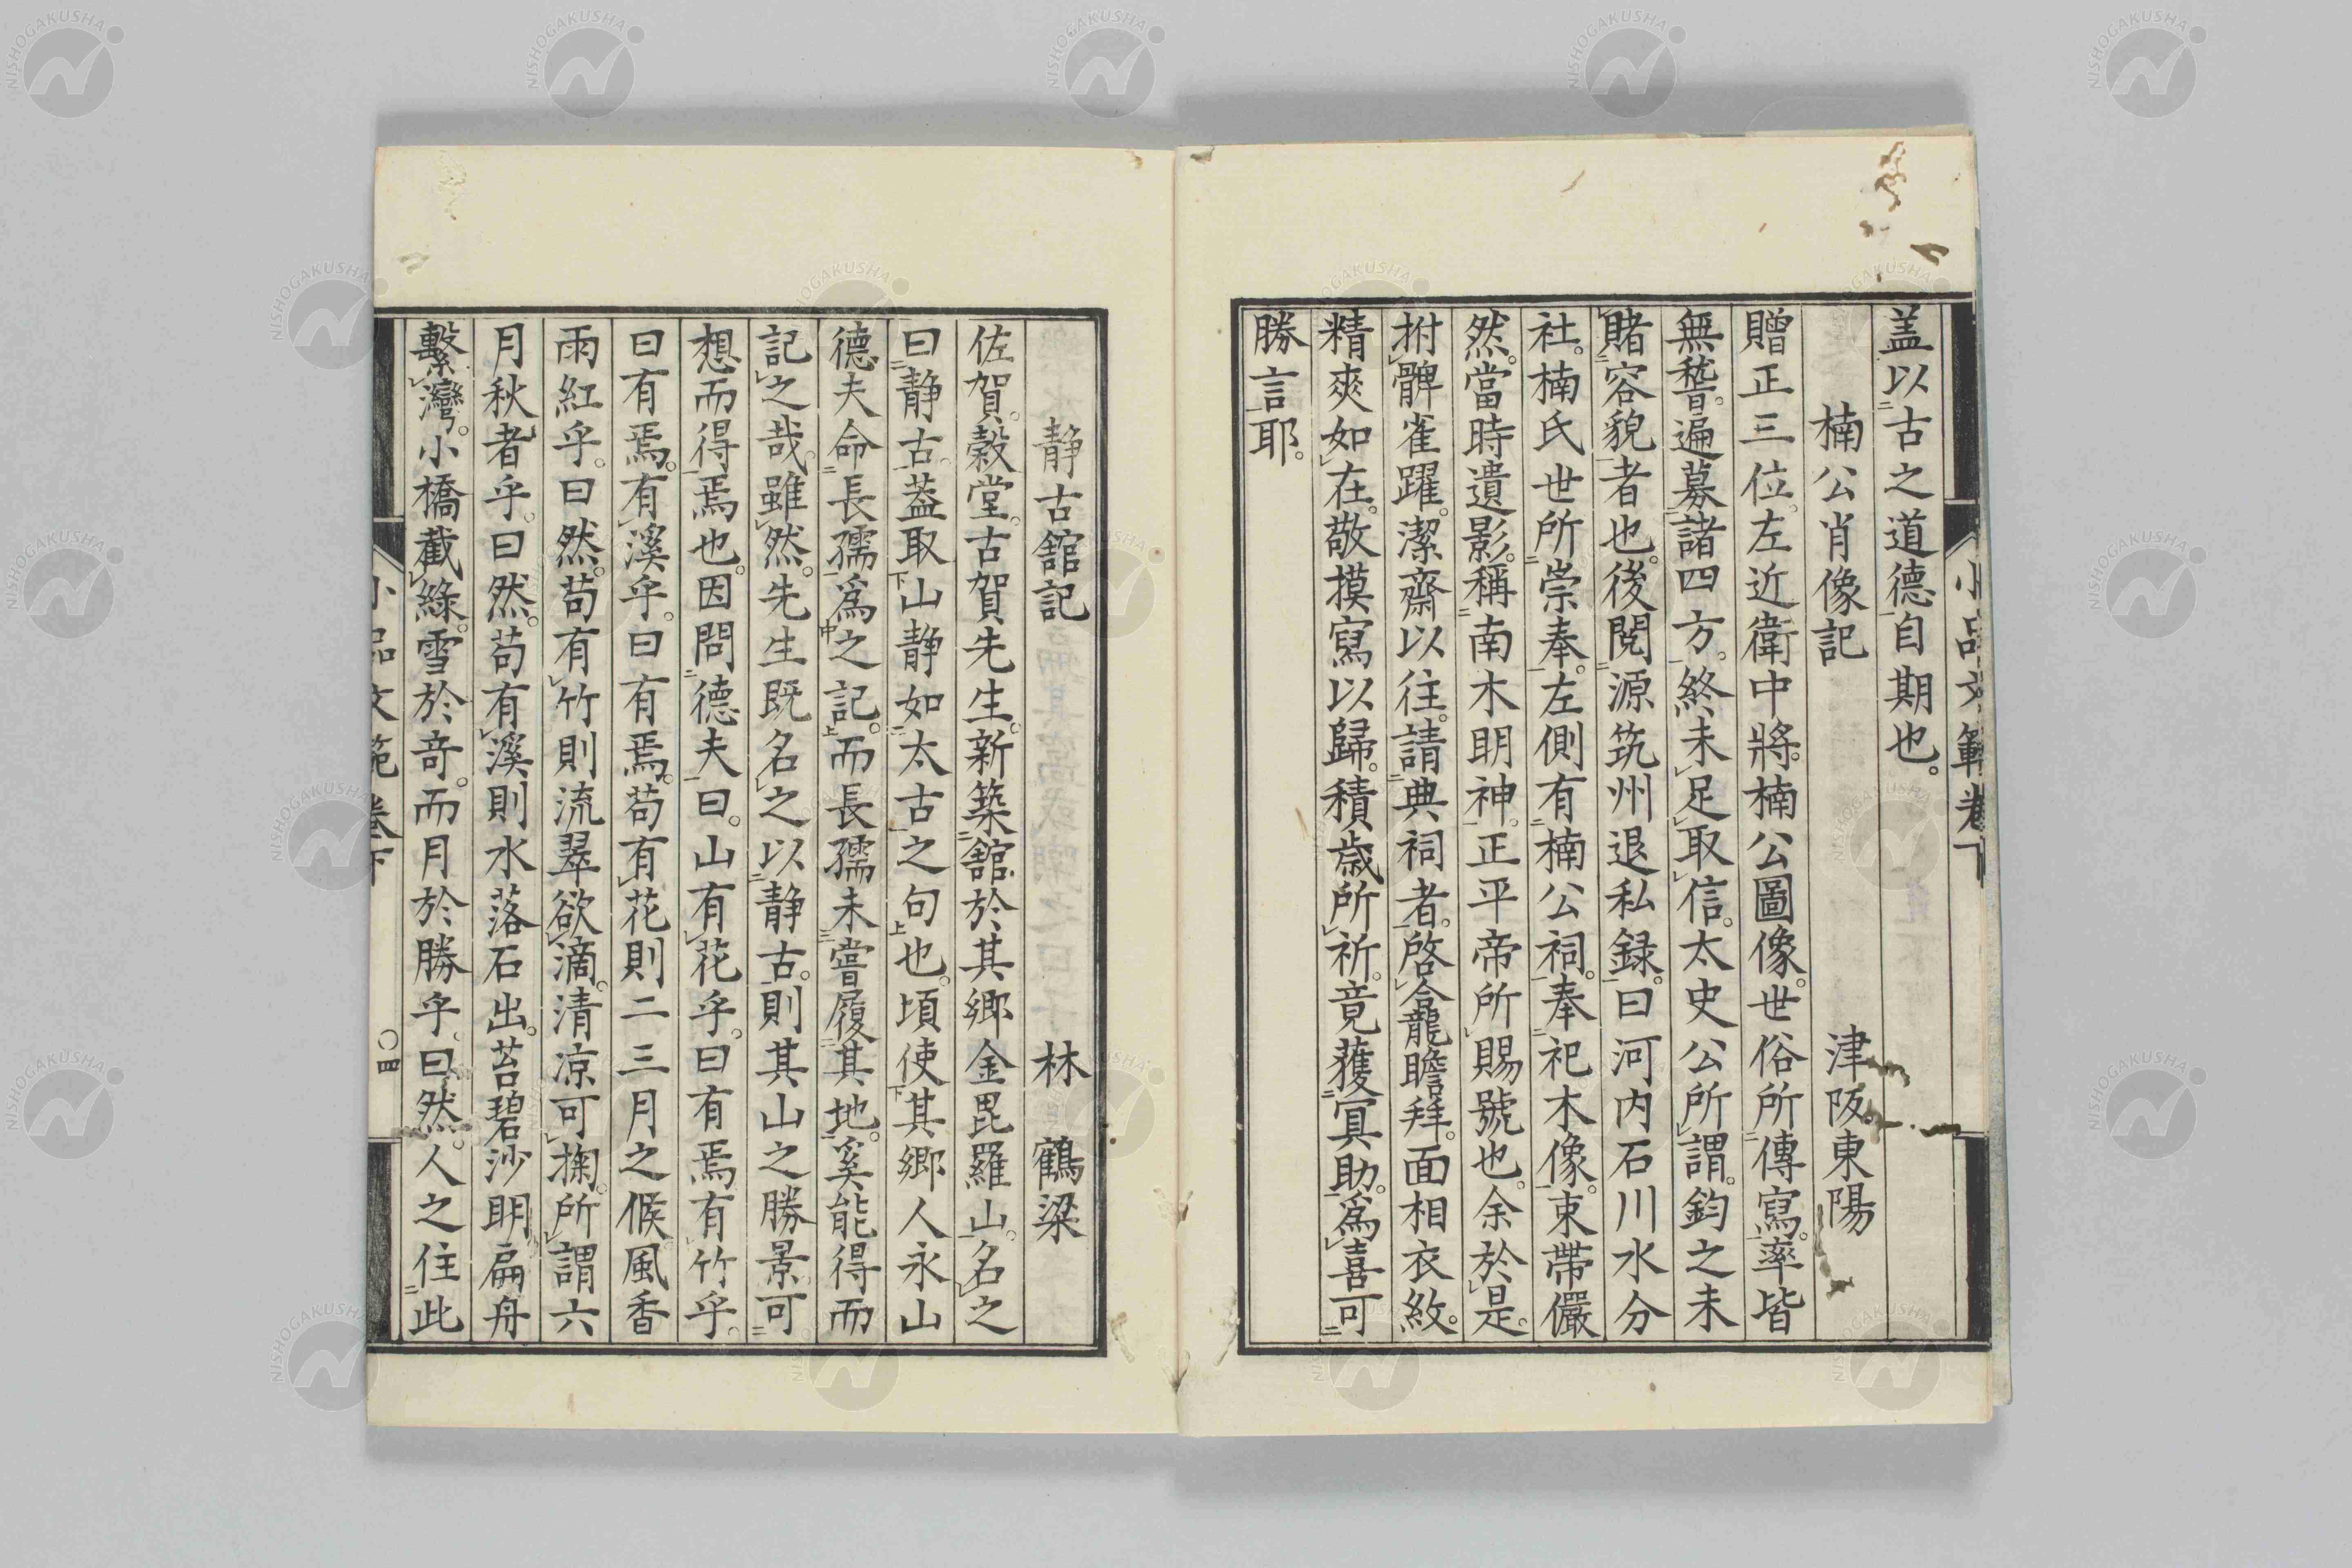 小品文範卷下
盖以古之道德自期也。
楠公肖像記　津阪東陽
贈正三位。左近衛中將。楠公圖像。世俗所傳寫。率皆
無稽。遍募諸四方。終未足取信。太史公所謂。鈞之未
賭容貌者也。後閱源筑州退私録。曰河内石川水分
社。楠氏世所崇奉。左側有楠公祠。奉祀木像。束帶儼
然。當時遺影。稱南木明神。正平帝所賜號也。余於是。
拊髀雀躍。潔齋以往。請典祠者。啓龕瞻拜。面相衣紋。
精爽如在。敬摸寫以歸。積歳所祈。竟獲冥助。爲喜可
勝言耶。
静古舘記　林　鶴梁
佐賀。穀堂。古賀先生。新築舘於其鄉金毘羅山。名之
曰静古。蓋取山静如太古之句也。頃使其鄉人永山
德夫命長孺爲之記。而長孺未嘗履其地。奚能得而
記之哉。雖然。先生既名之以静古。則其山之勝景可
想而得焉也。因問德夫曰。山有花乎。曰有焉。有竹乎。
曰有焉。有溪乎。曰有焉。苟有花則二三月之候風香
雨紅乎。曰然。苟有竹則流翠欲滴。清凉可掬。所謂六
月秋者乎。曰然。苟有溪則水落石出。苔碧沙明扁舟
繫灣。小橋截綠。雪於奇。而月於勝乎。曰然。人之住此
小品文範卷下
〇四
NISHOGAKUSHA